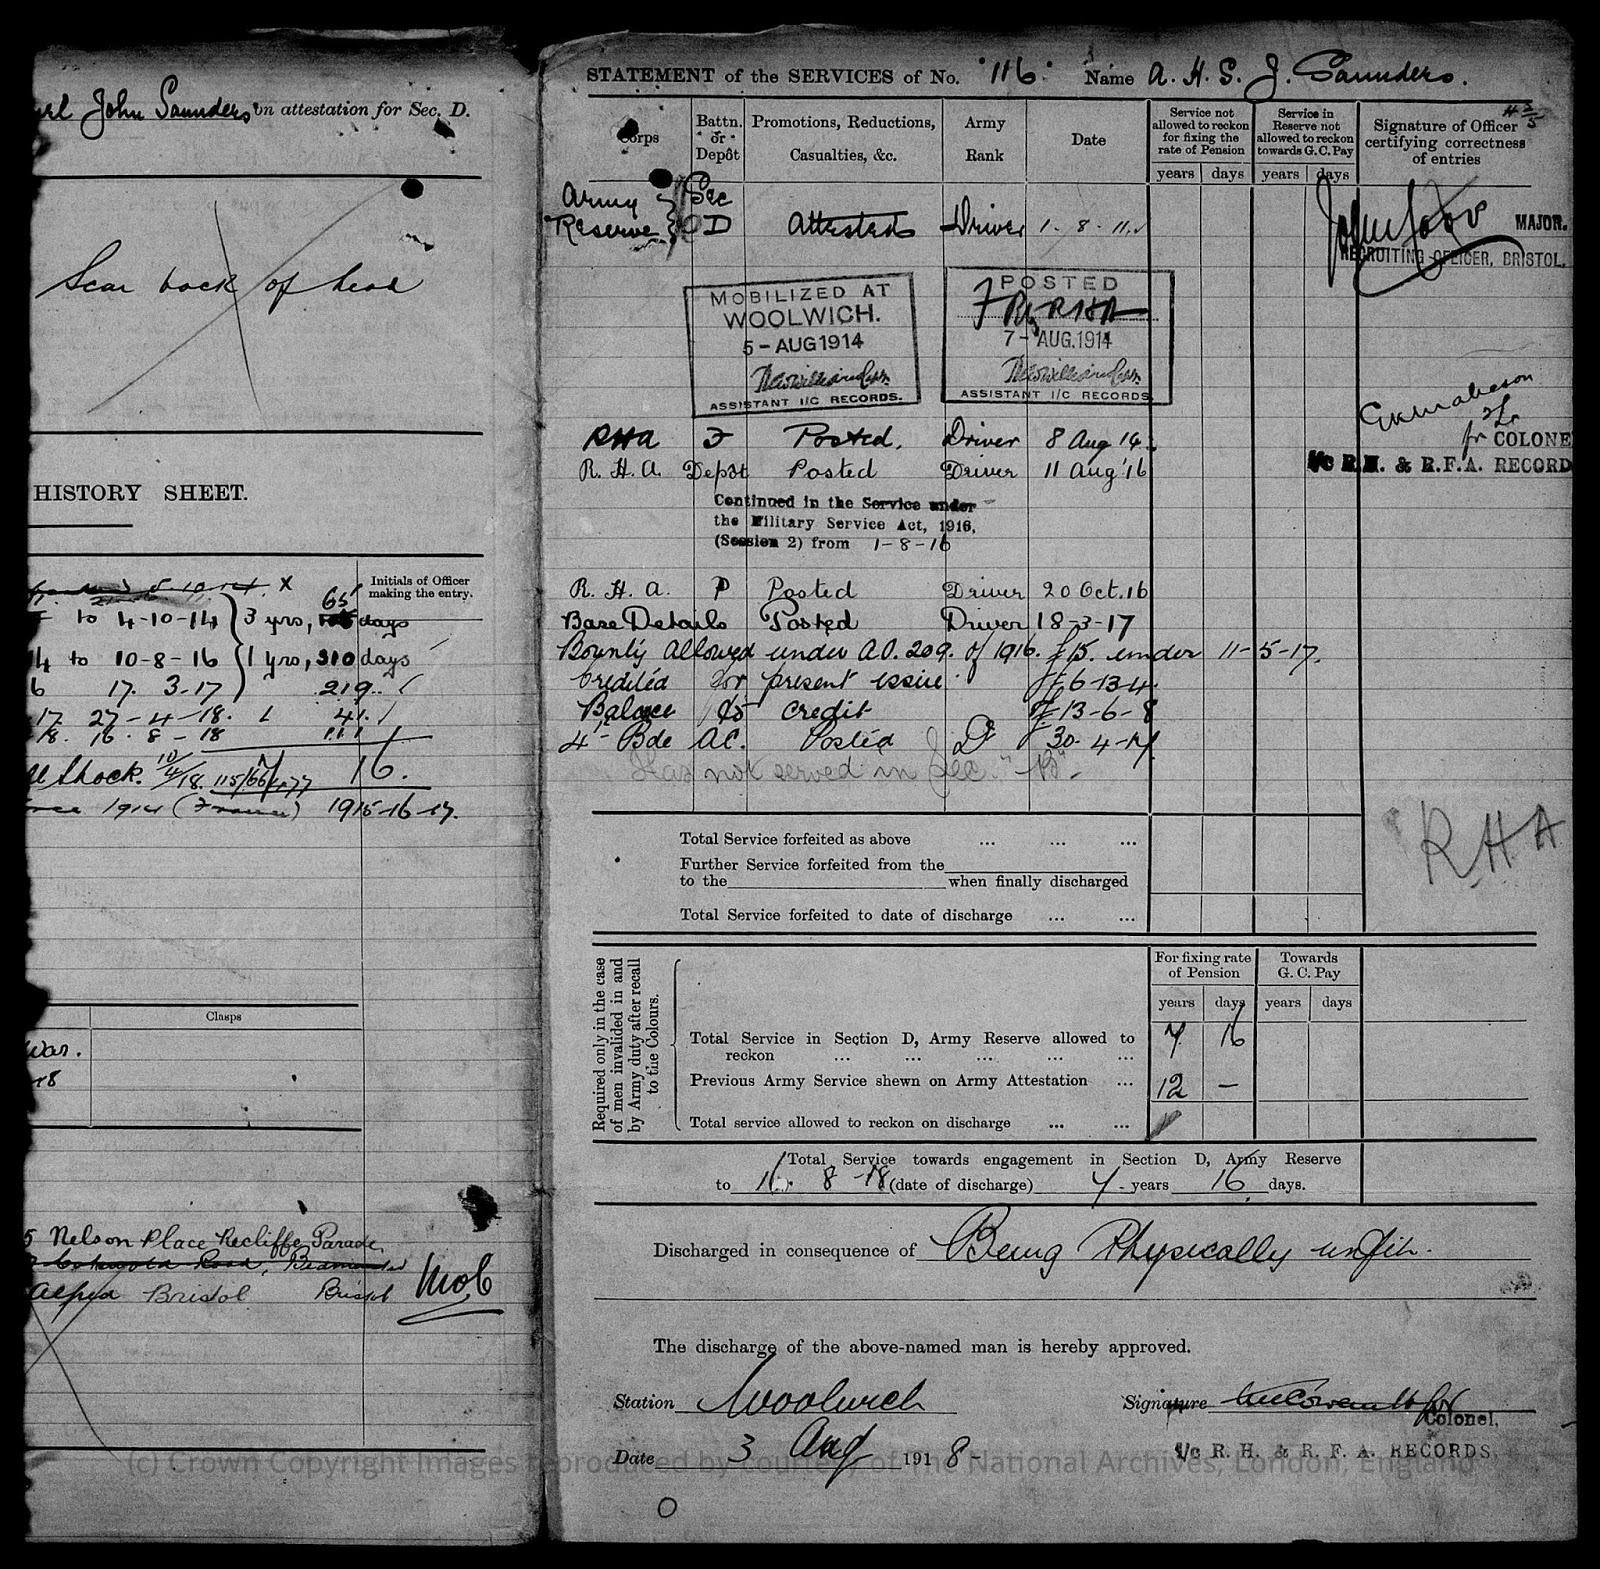 John Saunders on attestation for Sec. D.
Scar back of head
HISTORY SHEET.
Initials of Officer
making the entry.
to 4-10-14 3 yrs, 65 days
to 10-8-16 1 yrs, 310 days
17. 3-17 219
17 27-4-18. 41.
18. 16-8-18 111
Shock. 10/4/18. 16.
1914 (France) 1915-16-17.
Clasps
War.
18
5 Nelson Place Redcliffe Parade
Road, Bedminster
Bristol Bristol
STATEMENT of the SERVICES of No. 116 Name A. H. S. J. Saunders.
Corps
Battn. or Depôt
Promotions, Reductions, Casualties, &c.
Army Rank
Date
Service not allowed to reckon for fixing the rate of Pension
Service in Reserve not allowed to reckon towards G.C. Pay
Signature of Officer certifying correctness of entries
years days years days
Army Reserve Sec D Attested Driver 1-8-11
MAJOR.
RECRUITING OFFICER, BRISTOL.
MOBILIZED AT
WOOLWICH.
5-AUG 1914
ASSISTANT I/C RECORDS.
POSTED
RHA
7-AUG.1914
ASSISTANT I/C RECORDS.
RHA F Posted. Driver 8 Aug 14
for COLONE
R. H. A. Depôt Posted Driver 11 Aug '16
I/c R.H. & R.F.A. RECORD
Continued in the Service under
the Military Service Act, 1916,
(Session 2) from 1-8-16
R. H. A. P Posted Driver 20 Oct.16
Base Details Posted Driver 18-3-17
Bounty allowed under A.O. 209. of 1916. £15. under 11-5-17.
Credited for present issue £6-13-4
Balance to credit £13-6-8
4th Bde A.C. Posted Dr 30-4-17
Has not served in Sec. "B".
RHA
Total Service forfeited as above ... ... ...
Further Service forfeited from the
to the when finally discharged
Total Service forfeited to date of discharge ... ...
Required only in the case of men invalided in and by Army duty after recall to the Colours.
For fixing rate of Pension
Towards G. C. Pay
years days years days
Total Service in Section D, Army Reserve allowed to
reckon ... ... ... ... ... 7 16
Previous Army Service shewn on Army Attestation ... 12 –
Total service allowed to reckon on discharge ... ...
Total Service towards engagement in Section D, Army Reserve
to 16. 8-18 (date of discharge) 7 - years 16 days.
Discharged in consequence of Being Physically unfit.
The discharge of the above-named man is hereby approved.
Station Woolwich Signature
Colonel,
I/c R. H. & R. F. A. RECORDS.
Date 3 Aug 1918
(c) Crown Copyright Images reproduced by courtesy of The National Archives, London, England